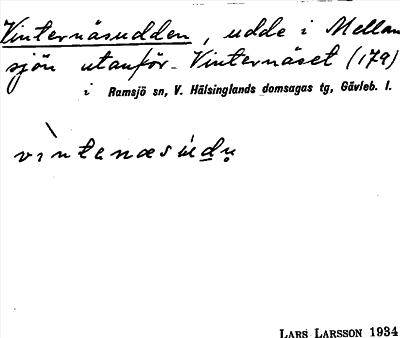 Vinternäsudden, udde i Mellan
sjön utanför Vinternäset (179)
i Ramsjö sn, V. Hälsinglands domsagas tg, Gävleb. l.
LARS LARSSON 1934